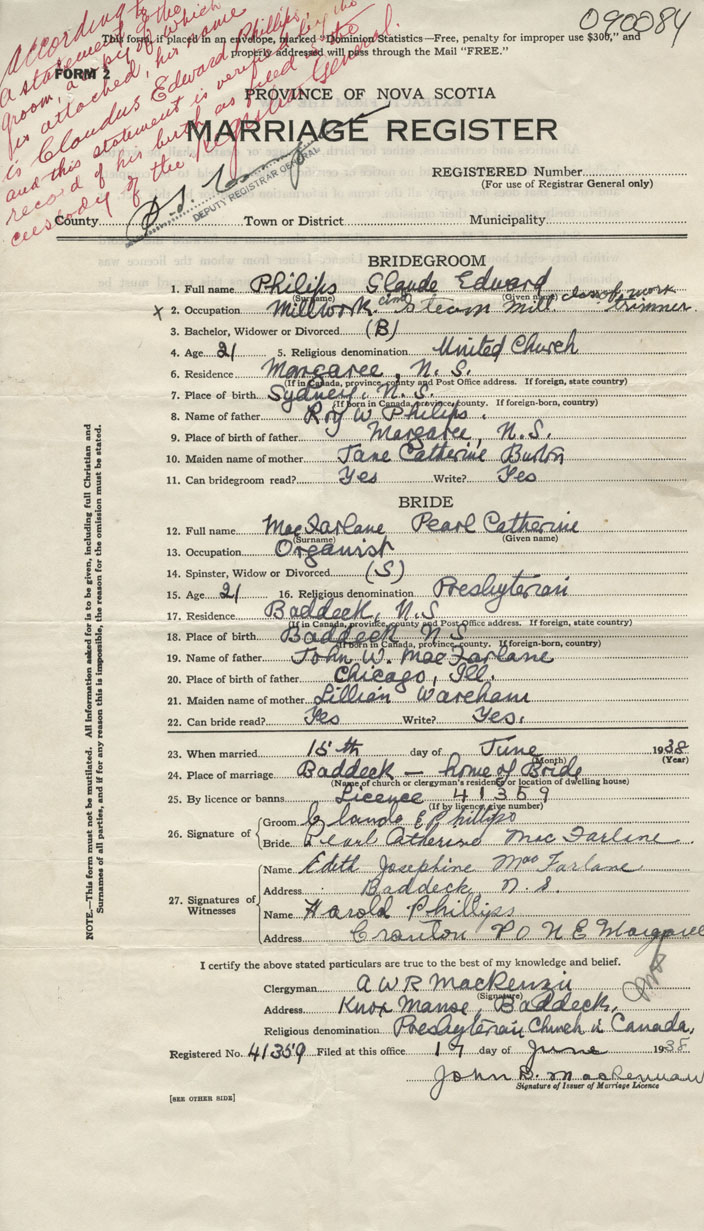 090084
This form, if placed in an envelope, marked "Dominion Statistics—Free, penalty for improper use $300," and
properly addressed will pass through the Mail "FREE."
According to
a statement of the
groom, a copy of which
is attached, his name
is Claudus Edward Phillips,
and this statement is verified by the
record of his birth as filed in the
custody of the Registrar General.
DEPUTY REGISTRAR GENERAL
FORM 2
PROVINCE OF NOVA SCOTIA
MARRIAGE REGISTER
REGISTERED Number
(For use of Registrar General only)
County Town or District Municipality
BRIDEGROOM
1. Full name Philips Claude Edward
(Surname) (Given name)
X 2. Occupation Millwork and steam Mill class of work Trimner
3. Bachelor, Widower or Divorced (B)
4. Age 21 5. Religious denomination United Church
6. Residence Margaree, N.S.
(If in Canada, province, county and Post Office address. If foreign, state country)
7. Place of birth Sydney, N.S.
(If born in Canada, province, county. If foreign-born, country)
8. Name of father Roy W Philips.
9. Place of birth of father Margaree, N.S.
10. Maiden name of mother Jane Catherine Burton
11. Can bridegroom read? Yes Write? Yes
BRIDE
12. Full name MacFarlane Pearl Catherine
(Surname) (Given name)
13. Occupation Organist
14. Spinster, Widow or Divorced (S)
15. Age 21 16. Religious denomination Presbyterian
17. Residence Baddeck, N.S
(If in Canada, province, county and Post Office address. If foreign, state country)
18. Place of birth Baddeck N S
(If born in Canada, province, county. If foreign-born, country)
19. Name of father John W. MacFarlane
20. Place of birth of father Chicago, Ill.
21. Maiden name of mother Lillian Wareham
22. Can bride read? Yes Write? Yes.
23. When married 15th day of June 1938
(Month) (Year)
24. Place of marriage Baddeck — home of Bride
(Name of church or clergyman's residence or location of dwelling house)
25. By licence or banns Licence 41359
(If by licence, give number)
26. Signature of Groom Claude E Phillips
Bride Pearl Catherine MacFarlane
27. Signatures of Witnesses
Name Edith Josephine MacFarlane
Address Baddeck, N.S.
Name Harold Phillips
Address Cranton P O N E Margaree
I certify the above stated particulars are true to the best of my knowledge and belief.
Clergyman A W R MacKenzie
(Signature)
Address Knox Manse, Baddeck,
Religious denomination Presbyterian Church in Canada,
Registered No. 41359 Filed at this office 17 day of June 1938
John D. MacLennan
Signature of Issuer of Marriage Licence
[SEE OTHER SIDE]
NOTE.—This form must not be mutilated. All information asked for is to be given, including full Christian and
Surnames of all parties, and if for any reason this is impossible, the reason for the omission must be stated.